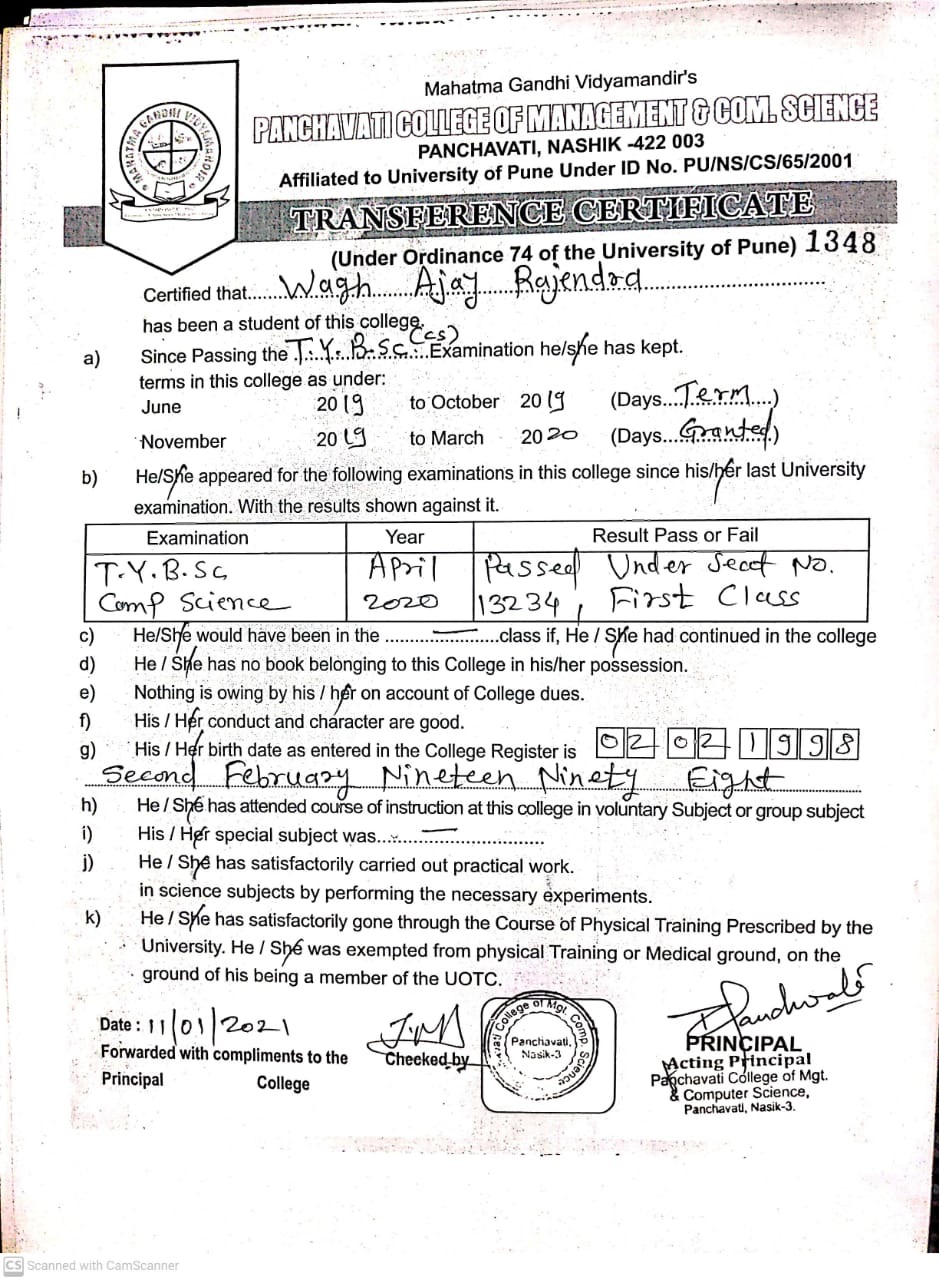 Mahatma Gandhi Vidyamandir's
PANCHAVATI COLLEGE OF MANAGEMENT & COM. SCIENCE
PANCHAVATI, NASHIK -422 003
Affiliated to University of Pune Under ID No. PU/NS/CS/65/2001
MAHATMA GANDHI VIDYAMANDIR
TRANSFERENCE CERTIFICATE
(Under Ordinance 74 of the University of Pune) 1348
Certified that......Wagh Ajay Rajendra......
has been a student of this college.
a) Since Passing the T.Y.B.Sc.(CS) Examination he/she has kept.
terms in this college as under:
June 2019 to October 2019 (Days....Term....)
November 2019 to March 2020 (Days...Granted.)
b) He/She appeared for the following examinations in this college since his/her last University
examination. With the results shown against it.
Examination Year Result Pass or Fail
T.Y.B.Sc April Passed Under Seat No.
Comp Science 2020 13234, First Class
c) He/She would have been in the ....................class if, He / She had continued in the college
d) He / She has no book belonging to this College in his/her possession.
e) Nothing is owing by his / her on account of College dues.
f) His / Her conduct and character are good.
g) His / Her birth date as entered in the College Register is 02 02 1998
Second February Nineteen Ninety Eight
h) He / She has attended course of instruction at this college in voluntary Subject or group subject
i) His / Her special subject was..............................
j) He / She has satisfactorily carried out practical work.
in science subjects by performing the necessary experiments.
k) He / She has satisfactorily gone through the Course of Physical Training Prescribed by the
University. He / She was exempted from physical Training or Medical ground, on the
ground of his being a member of the UOTC.
Date : 11/01/2021
Forwarded with compliments to the
Principal College
Checked by
College of Mgt. Comp. Science
Panchavati,
Nasik-3
PRINCIPAL
Acting Principal
Panchavati College of Mgt.
& Computer Science,
Panchavati, Nasik-3.
CS Scanned with CamScanner